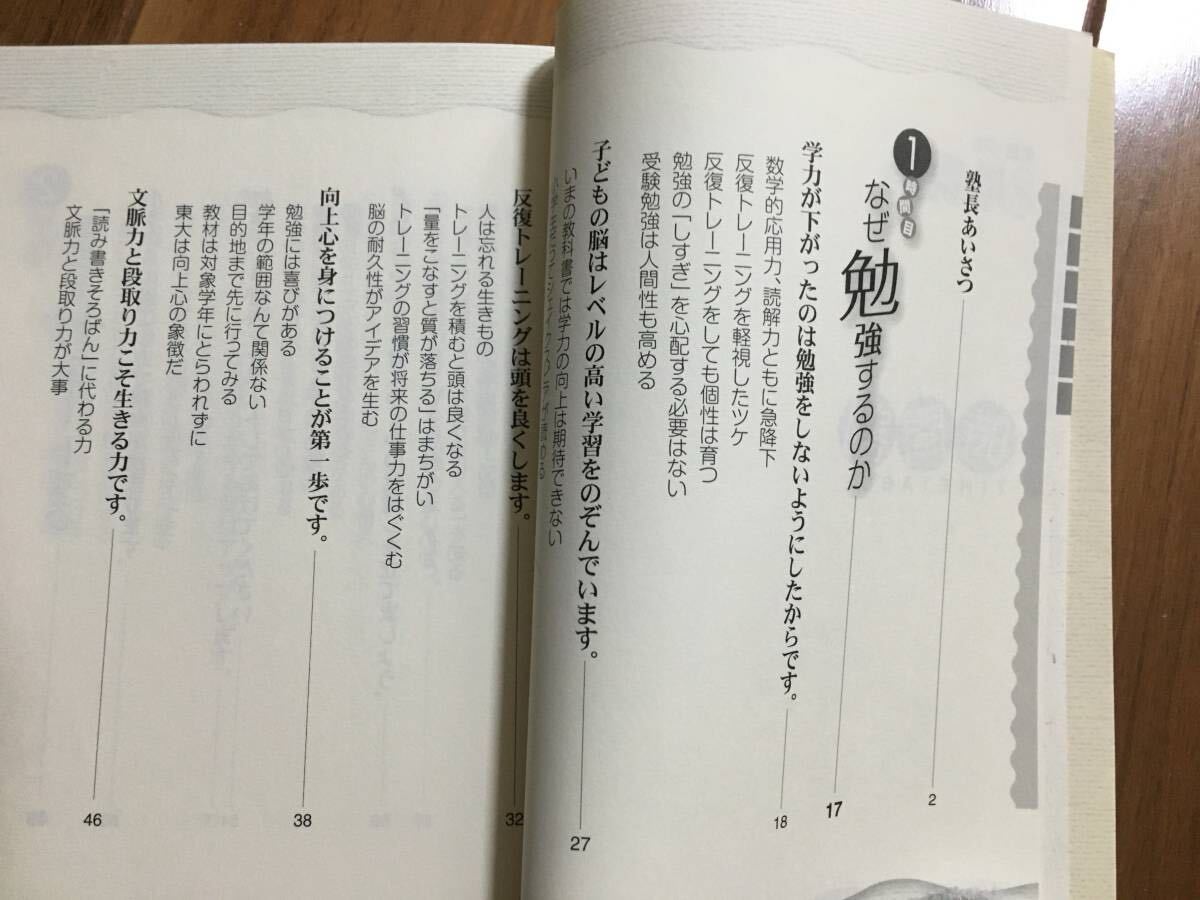 塾長あいさつ
2
1時間目
なぜ勉強するのか
17
学力が下がったのは勉強をしないようにしたからです。
18
数学的応用力、読解力ともに急降下
反復トレーニングを軽視したツケ
反復トレーニングをしても個性は育つ
勉強の「しすぎ」を心配する必要はない
受験勉強は人間性も高める
子どもの脳はレベルの高い学習をのぞんでいます。
27
いまの教科書では学力の向上は期待できない
反復トレーニングは頭を良くします。
32
人は忘れる生きもの
トレーニングを積むと頭は良くなる
「量をこなすと質が落ちる」はまちがい
トレーニングの習慣が将来の仕事力をはぐくむ
脳の耐久性がアイデアを生む
向上心を身につけることが第一歩です。
38
勉強には喜びがある
学年の範囲なんて関係ない
目的地まで先に行ってみる
教材は対象学年にとらわれずに
東大は向上心の象徴だ
文脈力と段取り力こそ生きる力です。
46
「読み書きそろばん」に代わる力
文脈力と段取り力が大事